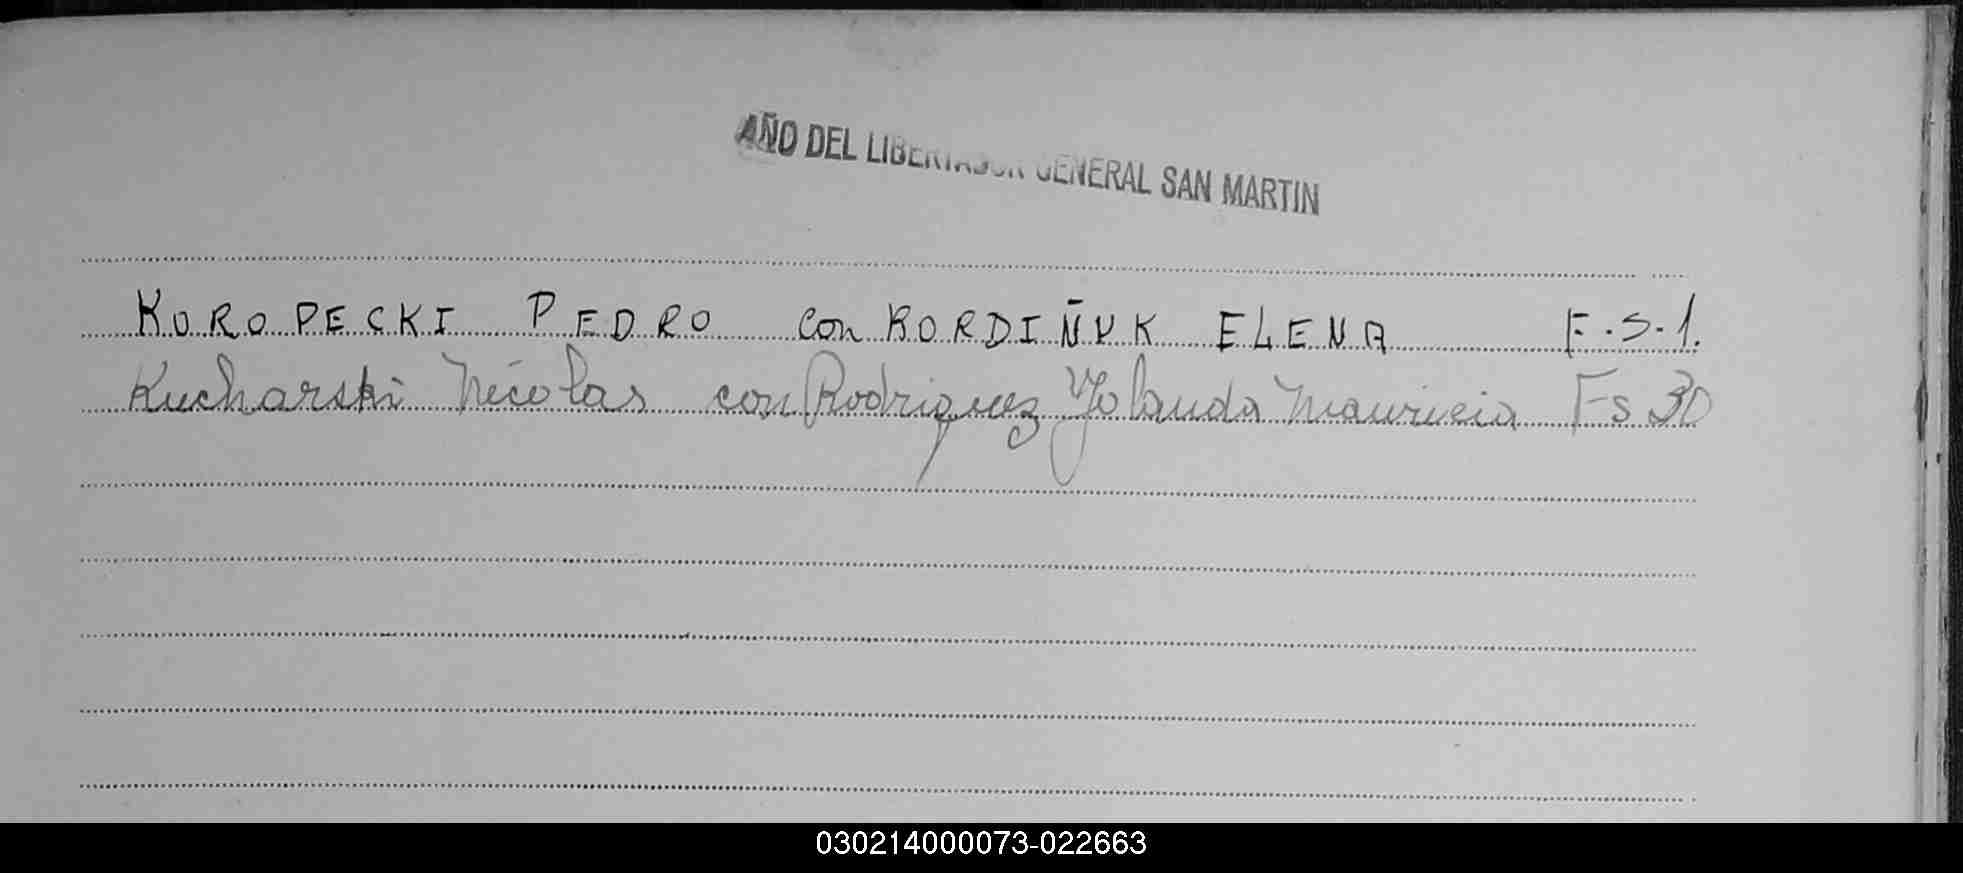 AÑO DEL LIBERTADOR GENERAL SAN MARTIN
KOROPECKI PEDRO con BORDIÑUK ELENA F.S.1.
Kucharski Nicolas con Rodriguez Yolanda Mauricia Fs 30
030214000073-022663